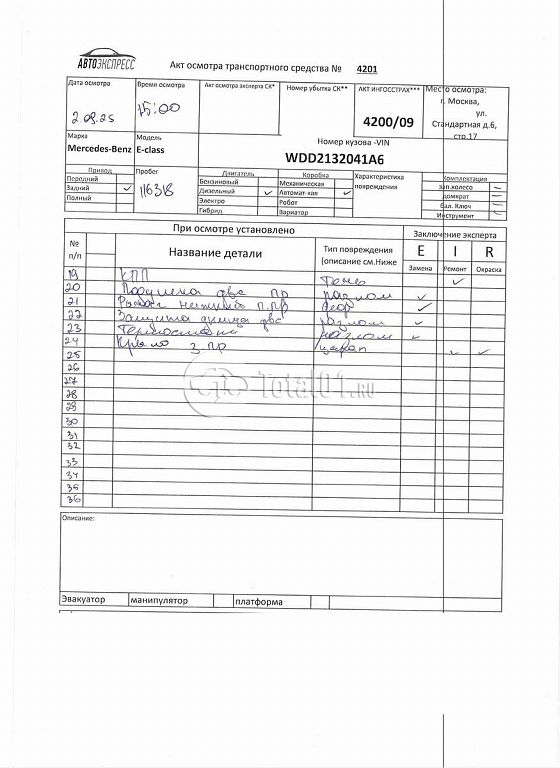 АВТОЭКСПРЕСС
Акт осмотра транспортного средства № 4201
Дата осмотра
Время осмотра
Акт осмотра эксперта СК*
Номер убытка СК**
АКТ ИНГОССТРАХ***
Место осмотра:
2.09.25
15:00
4200/09
г. Москва,
ул.
Стандартная д.6,
стр.17
Марка
Модель
Номер кузова -VIN
Mercedes-Benz
E-class
WDD2132041A6
Привод
Пробег
Двигатель
Коробка
Характеристика повреждения
Комплектация
Передний
116318
Бензиновый
Механическая
зап.колесо
Задний
Дизельный
Автомат-кая
домкрат
Полный
Электро
Робот
бал. Ключ
Гибрид
Вариатор
Инструмент
При осмотре установлено
Заключение эксперта
№ п/п
Название детали
Тип повреждения (описание см.Ниже
E I R
Замена Ремонт Окраска
19 КПП
20 Подушка двс пр разлом
21 Рычаг нижний п.пр деф
22 Защита днища двс разлом
23 Термостат разлом
24 Крыло з пр царап
25
26
27
28
29
30
31
32
33
34
35
36
Total01.RU
Описание:
Эвакуатор
манипулятор
платформа